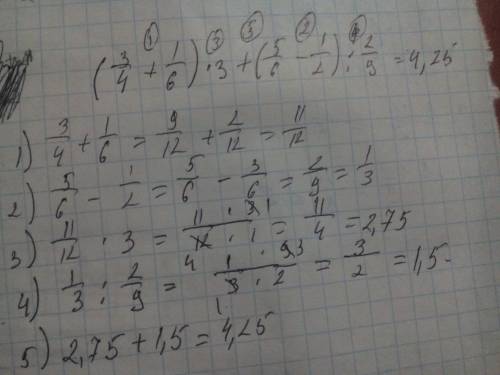 ① ③ ⑤ ② ④
(3/4 + 1/6) · 3 + (5/6 - 1/2) : 2/9 = 4,25
1) 3/4 + 1/6 = 9/12 + 2/12 = 11/12
2) 5/6 - 1/2 = 5/6 - 3/6 = 2/9 = 1/3
3) 11/12 · 3 = 11 · 3 1/12 4 · 1 = 11/4 = 2,75
4) 1/3 : 2/9 = 1 · 9 3/3 1 · 2 = 3/2 = 1,5
5) 2,75 + 1,5 = 4,25